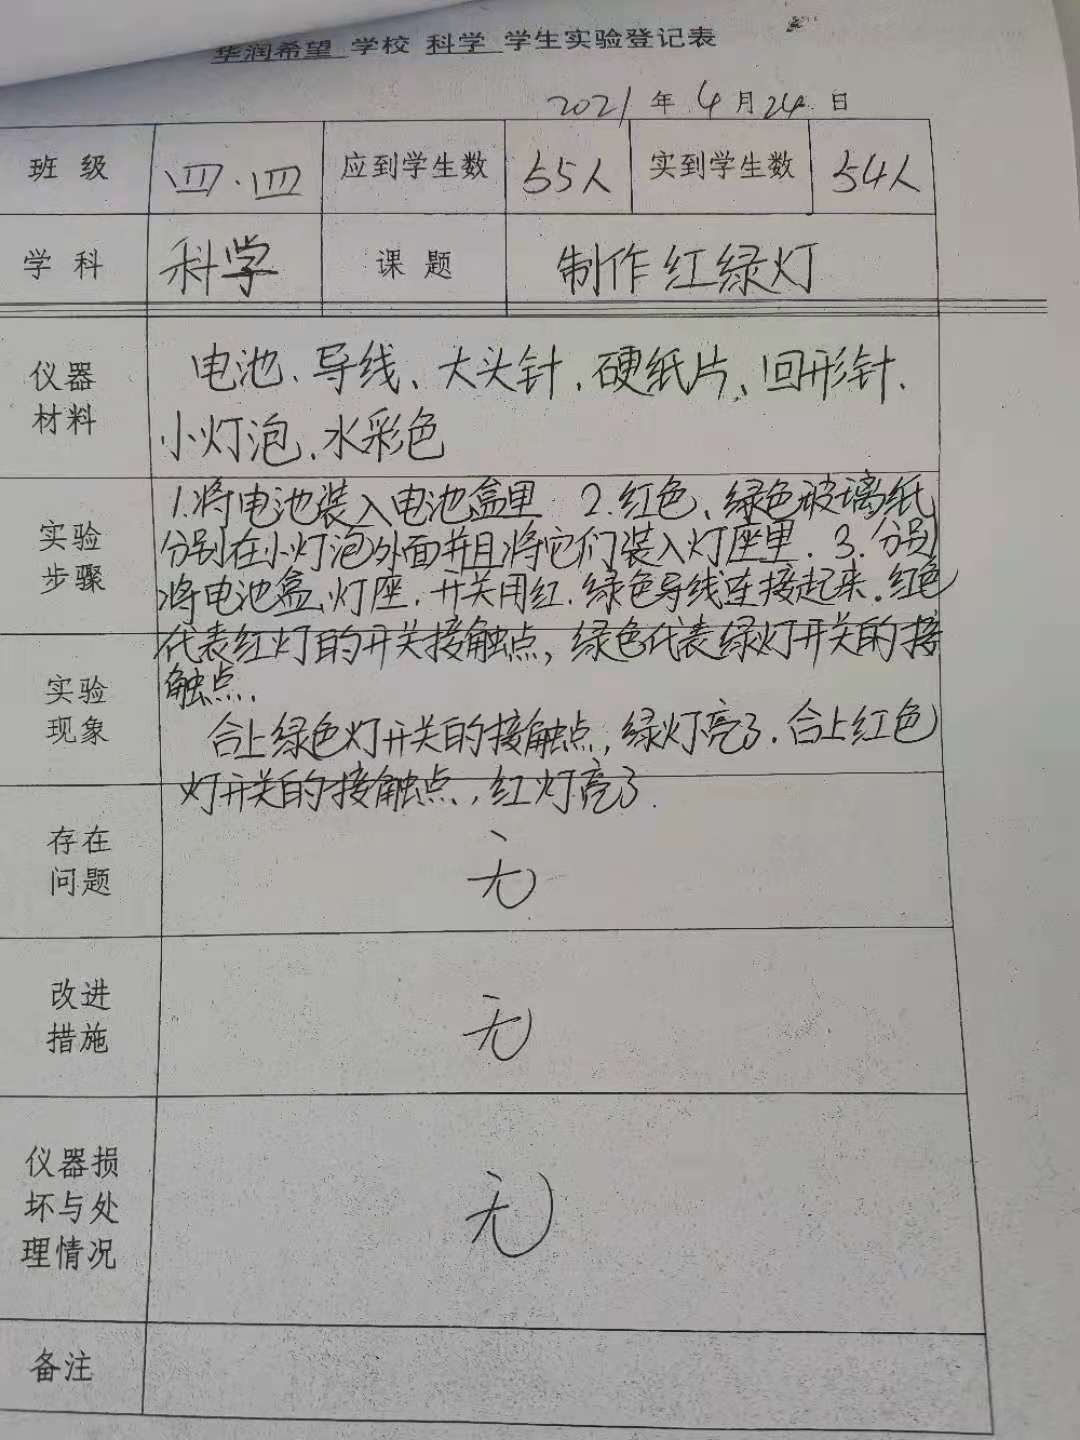 华润希望 学校 科学 学生实验登记表
2021 年 4 月 24 日
班 级 四.四 应到学生数 55人 实到学生数 54人
学 科 科学 课 题 制作红绿灯
仪器
材料
电池、导线、大头针、硬纸片、回形针、
小灯泡、水彩色
实验
步骤
1.将电池装入电池盒里 2.红色、绿色玻璃纸
分别在小灯泡外面并且将它们装入灯座里. 3.分别
将电池盒、灯座、开关用红、绿色导线连接起来。红色
代表红灯的开关接触点，绿色代表绿灯开关的接
触点.
实验
现象
合上绿色灯开关的接触点，绿灯亮了.合上红色
灯开关的接触点，红灯亮了.
存在
问题
无
改进
措施
无
仪器损
坏与处
理情况
无
备注